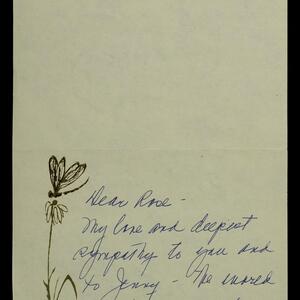 Dear Rose -
My love and deepest
sympathy to you and
to Jenny - He